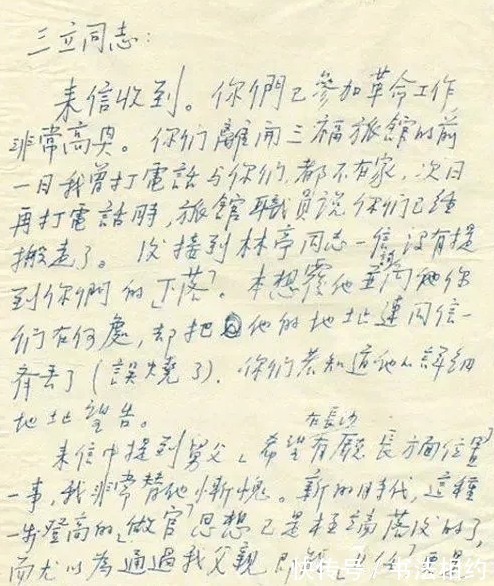 三立同志：
来信收到。你們已參加革命工作
非常高興。你们離開三福旅館的前
一日我曾打電話与你们，都不在家，次日
再打電話時，旅館職員说你们已经
搬走了。後接到林亭同志一信，没有提
到你們的「下落」。本想覆他並询他你
们在何處，却把他的地址連同信一
齊丢了（誤燒了）。你们若知道他的詳细
地址望告。
来信中提到舅父「希望在長沙有厰長方面位置」
一事，我非常替他慚愧。新的時代，這種
一步登高的「做官」思想已是極端落後的了，
而尤以為通過我父親即能
快传号/书法相约